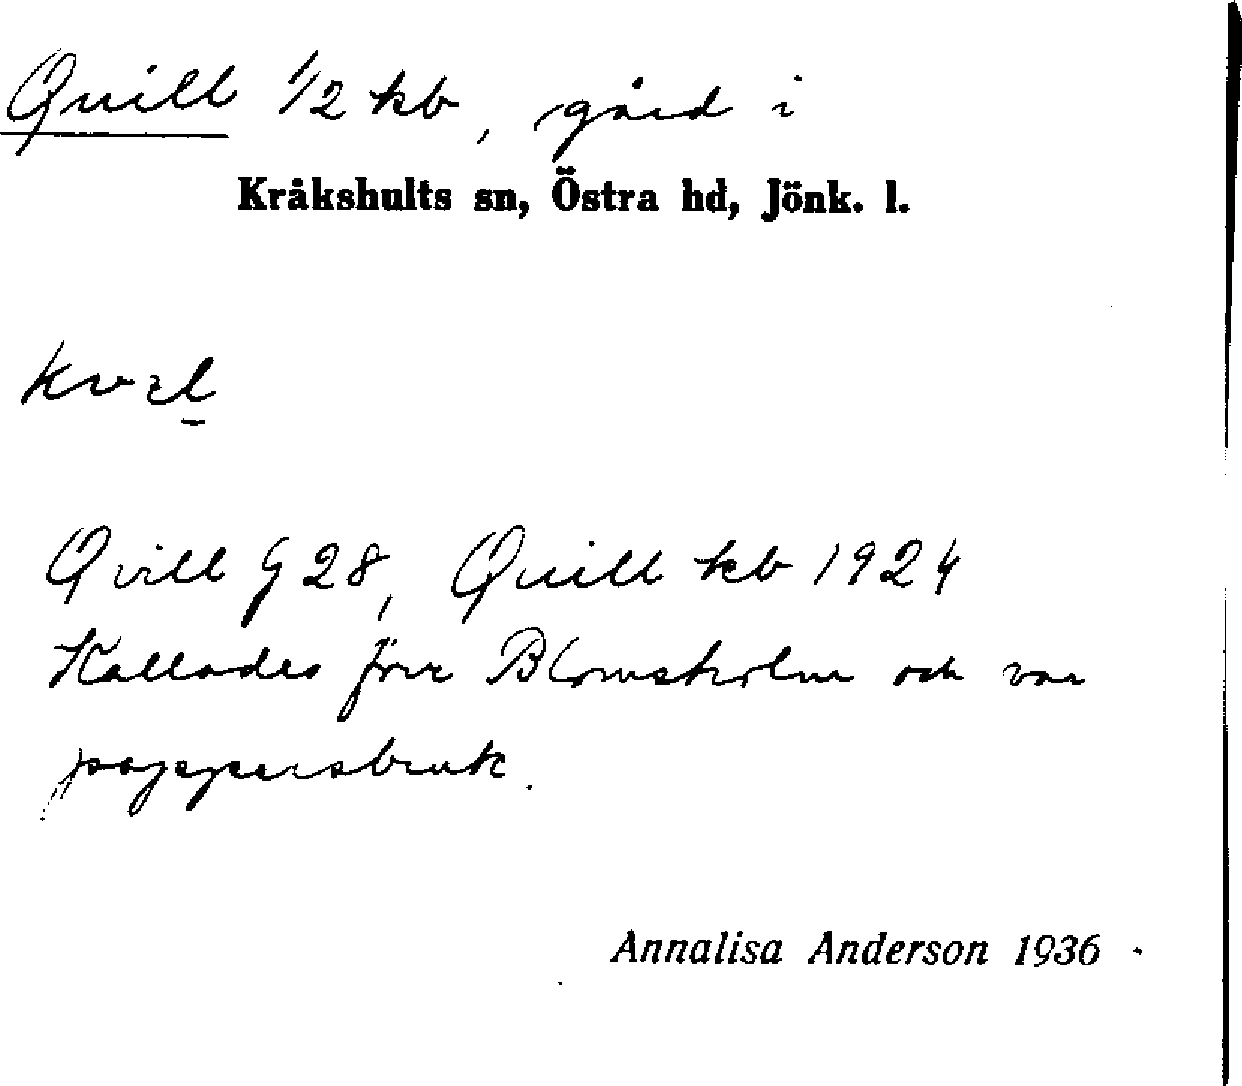 Quill 1/2 kb, gård i
Kråkshults sn, Östra hd, Jönk. l.
kvɛl̲
Qvill G 28, Quill kb 1924
Kallades förr Blomsholm och var
pappersbruk.
Annalisa Anderson 1936